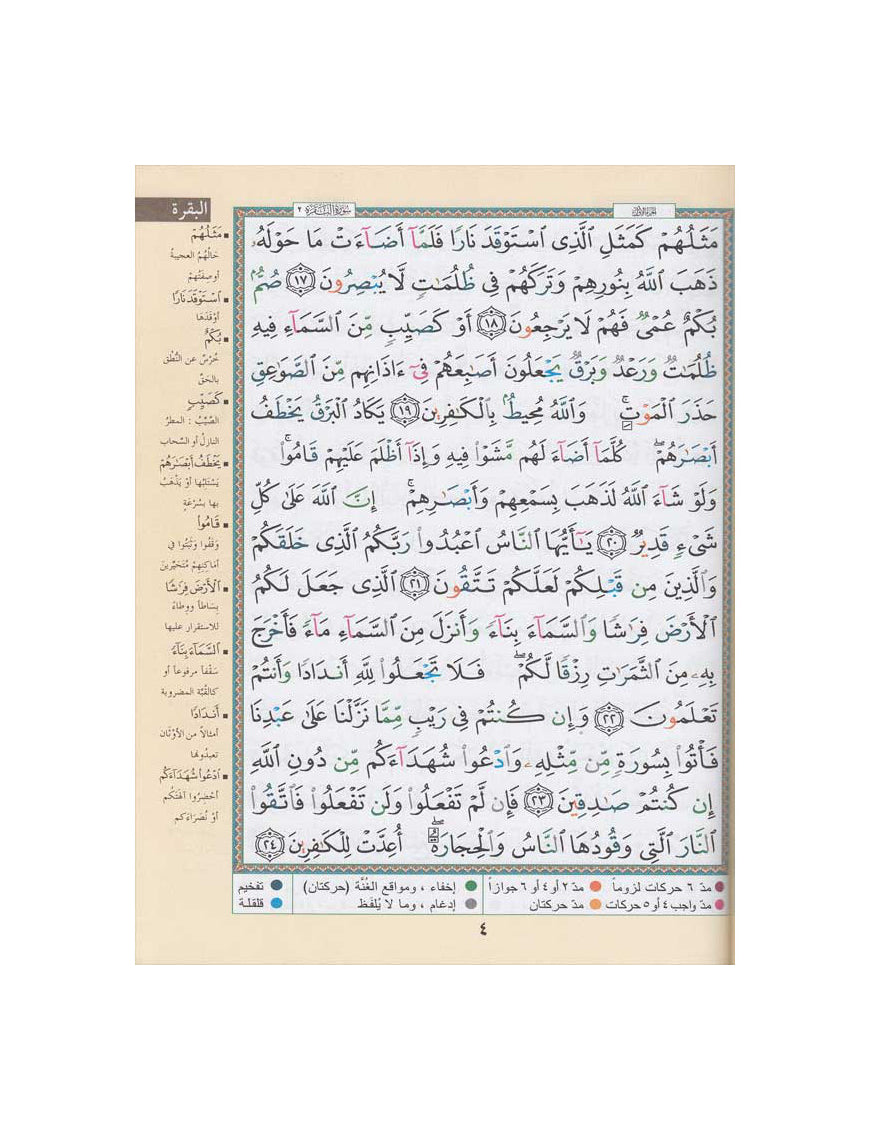 البقرة
سورة البقرة ٢
الجزء الأول
مَثَلُهُمْ كَمَثَلِ ٱلَّذِى ٱسْتَوْقَدَ نَارًا فَلَمَّآ أَضَآءَتْ مَا حَوْلَهُۥ
ذَهَبَ ٱللَّهُ بِنُورِهِمْ وَتَرَكَهُمْ فِى ظُلُمَٰتٍ لَّا يُبْصِرُونَ ﴿١٧﴾ صُمٌّۢ
بُكْمٌ عُمْىٌ فَهُمْ لَا يَرْجِعُونَ ﴿١٨﴾ أَوْ كَصَيِّبٍ مِّنَ ٱلسَّمَآءِ فِيهِ
ظُلُمَٰتٌ وَرَعْدٌ وَبَرْقٌ يَجْعَلُونَ أَصَٰبِعَهُمْ فِىٓ ءَاذَانِهِم مِّنَ ٱلصَّوَٰعِقِ
حَذَرَ ٱلْمَوْتِ ۚ وَٱللَّهُ مُحِيطٌۢ بِٱلْكَٰفِرِينَ ﴿١٩﴾ يَكَادُ ٱلْبَرْقُ يَخْطَفُ
أَبْصَٰرَهُمْ ۖ كُلَّمَآ أَضَآءَ لَهُم مَّشَوْا۟ فِيهِ وَإِذَآ أَظْلَمَ عَلَيْهِمْ قَامُوا۟ ۚ
وَلَوْ شَآءَ ٱللَّهُ لَذَهَبَ بِسَمْعِهِمْ وَأَبْصَٰرِهِمْ ۚ إِنَّ ٱللَّهَ عَلَىٰ كُلِّ
شَىْءٍ قَدِيرٌ ﴿٢٠﴾ يَٰٓأَيُّهَا ٱلنَّاسُ ٱعْبُدُوا۟ رَبَّكُمُ ٱلَّذِى خَلَقَكُمْ
وَٱلَّذِينَ مِن قَبْلِكُمْ لَعَلَّكُمْ تَتَّقُونَ ﴿٢١﴾ ٱلَّذِى جَعَلَ لَكُمُ
ٱلْأَرْضَ فِرَٰشًا وَٱلسَّمَآءَ بِنَآءً وَأَنزَلَ مِنَ ٱلسَّمَآءِ مَآءً فَأَخْرَجَ
بِهِۦ مِنَ ٱلثَّمَرَٰتِ رِزْقًا لَّكُمْ ۖ فَلَا تَجْعَلُوا۟ لِلَّهِ أَندَادًا وَأَنتُمْ
تَعْلَمُونَ ﴿٢٢﴾ وَإِن كُنتُمْ فِى رَيْبٍ مِّمَّا نَزَّلْنَا عَلَىٰ عَبْدِنَا
فَأْتُوا۟ بِسُورَةٍ مِّن مِّثْلِهِۦ وَٱدْعُوا۟ شُهَدَآءَكُم مِّن دُونِ ٱللَّهِ
إِن كُنتُمْ صَٰدِقِينَ ﴿٢٣﴾ فَإِن لَّمْ تَفْعَلُوا۟ وَلَن تَفْعَلُوا۟ فَٱتَّقُوا۟
ٱلنَّارَ ٱلَّتِى وَقُودُهَا ٱلنَّاسُ وَٱلْحِجَارَةُ ۖ أُعِدَّتْ لِلْكَٰفِرِينَ ﴿٢٤﴾
▪ مَثَلُهُمْ
حَالُهُمُ العجيبةُ
أوصِفَتُهُمْ
▪ اسْتَوْقَدَ نَارًا
أوْقَدَهَا
▪ بُكْمٌ
خُرْسٌ عن النُّطْقِ
بالحَقِّ
▪ كَصَيِّبٍ
الصَّيِّبُ : المطرُ
النازلُ أو السَّحاب
▪ يَخْطَفُ أَبْصَٰرَهُمْ
يَسْتَلِبُهَا أوْ يَذْهَبُ
بِها بسُرْعَةٍ
▪ قَامُوا۟
وَقَفُوا وَثَبَتُوا في
أماكِنِهِمْ مُتَحَيِّرين
▪ الْأَرْضَ فِرَٰشًا
بِسَاطاً ووِطاءً
للاستقرار عليها
▪ السَّمَآءَ بِنَآءً
سَقْفاً مرفوعاً أو
كالقُبَّةِ المضروبة
▪ أَندَادًا
أمثالاً من الأوْثَان
تعبدُونها
▪ ادْعُوا۟ شُهَدَآءَكُم
أحْضِرُوا آلهَتَكُم
أوْ نُصَرَاءَكم
مدّ ٦ حركات لزوماً مدّ ٢ أو ٤ أو ٦ جوازاً إخفاء ، ومواقع الغُنَّة (حركتان) تفخيم
مدّ واجب ٤ أو ٥ حركات مدّ حركتان إدغام ، وما لا يُلفَظ قلقلة
٤